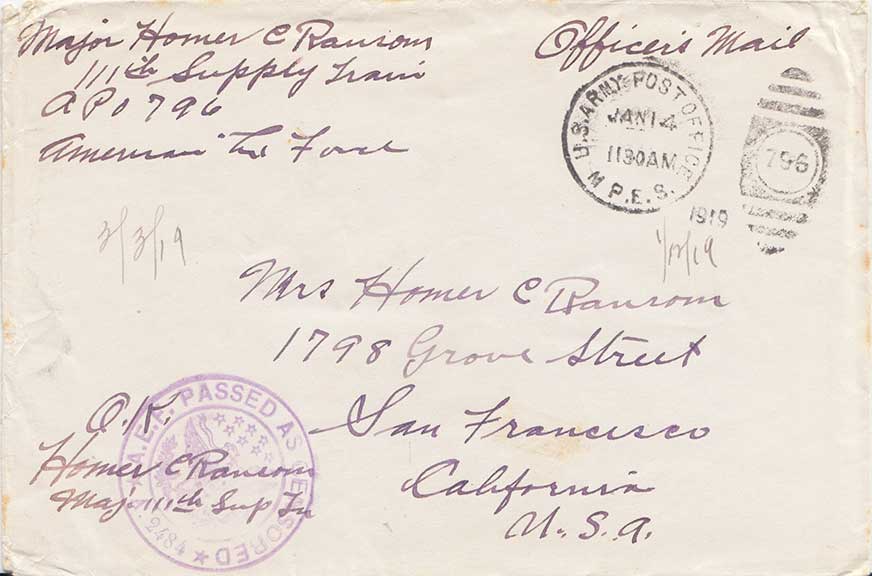 Major Homer C Ransom
111th Supply Train
APO 796
American Ex Force
Officer's Mail
U.S. ARMY POST OFFICE
JAN 14
1130AM
M.P.E.S.
1919
796
3/3/19
Mrs Homer C Ransom
1798 Grove Street
San Francisco
California
U.S.A.
A.E.F. PASSED AS CENSORED
2484
O.K.
Homer C Ransom
Maj. 111th Sup Tn